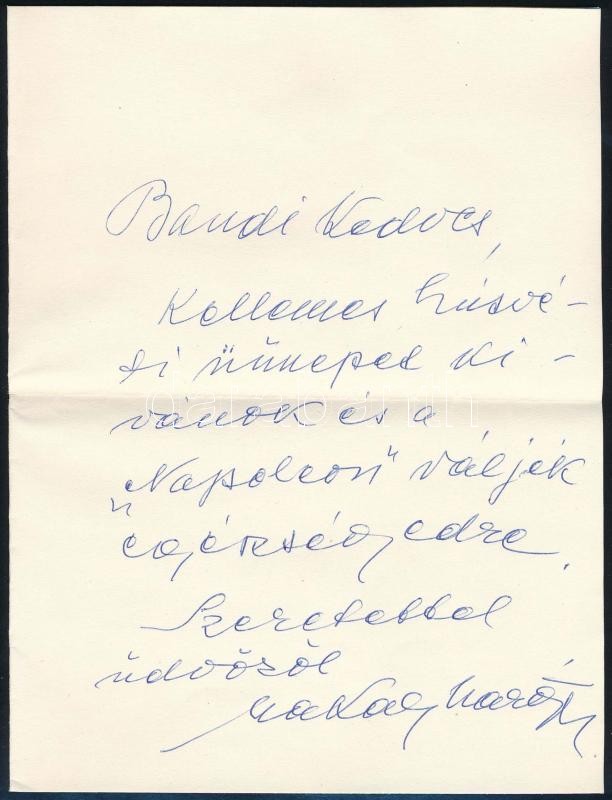 Bandi Kedves,
Kellemes húsvé-
ti ünnepet ki-
vánok és a
„Napoleon" váljék
egészségedre.
Szeretettel
üdvözöl
Makay Margit